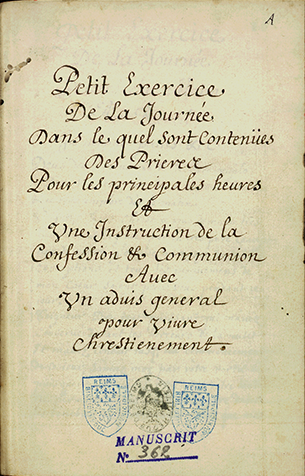 A
Petit Exercice
De La Journée
Dans le quel sont Contenües
Des Prieres
Pour les principales heures
Et
Vne Instruction de la
Confession & Communion
Auec
Vn aduis general
pour viure
Chrestienement.
REIMS
REIMS
MANUSCRIT
N° 362